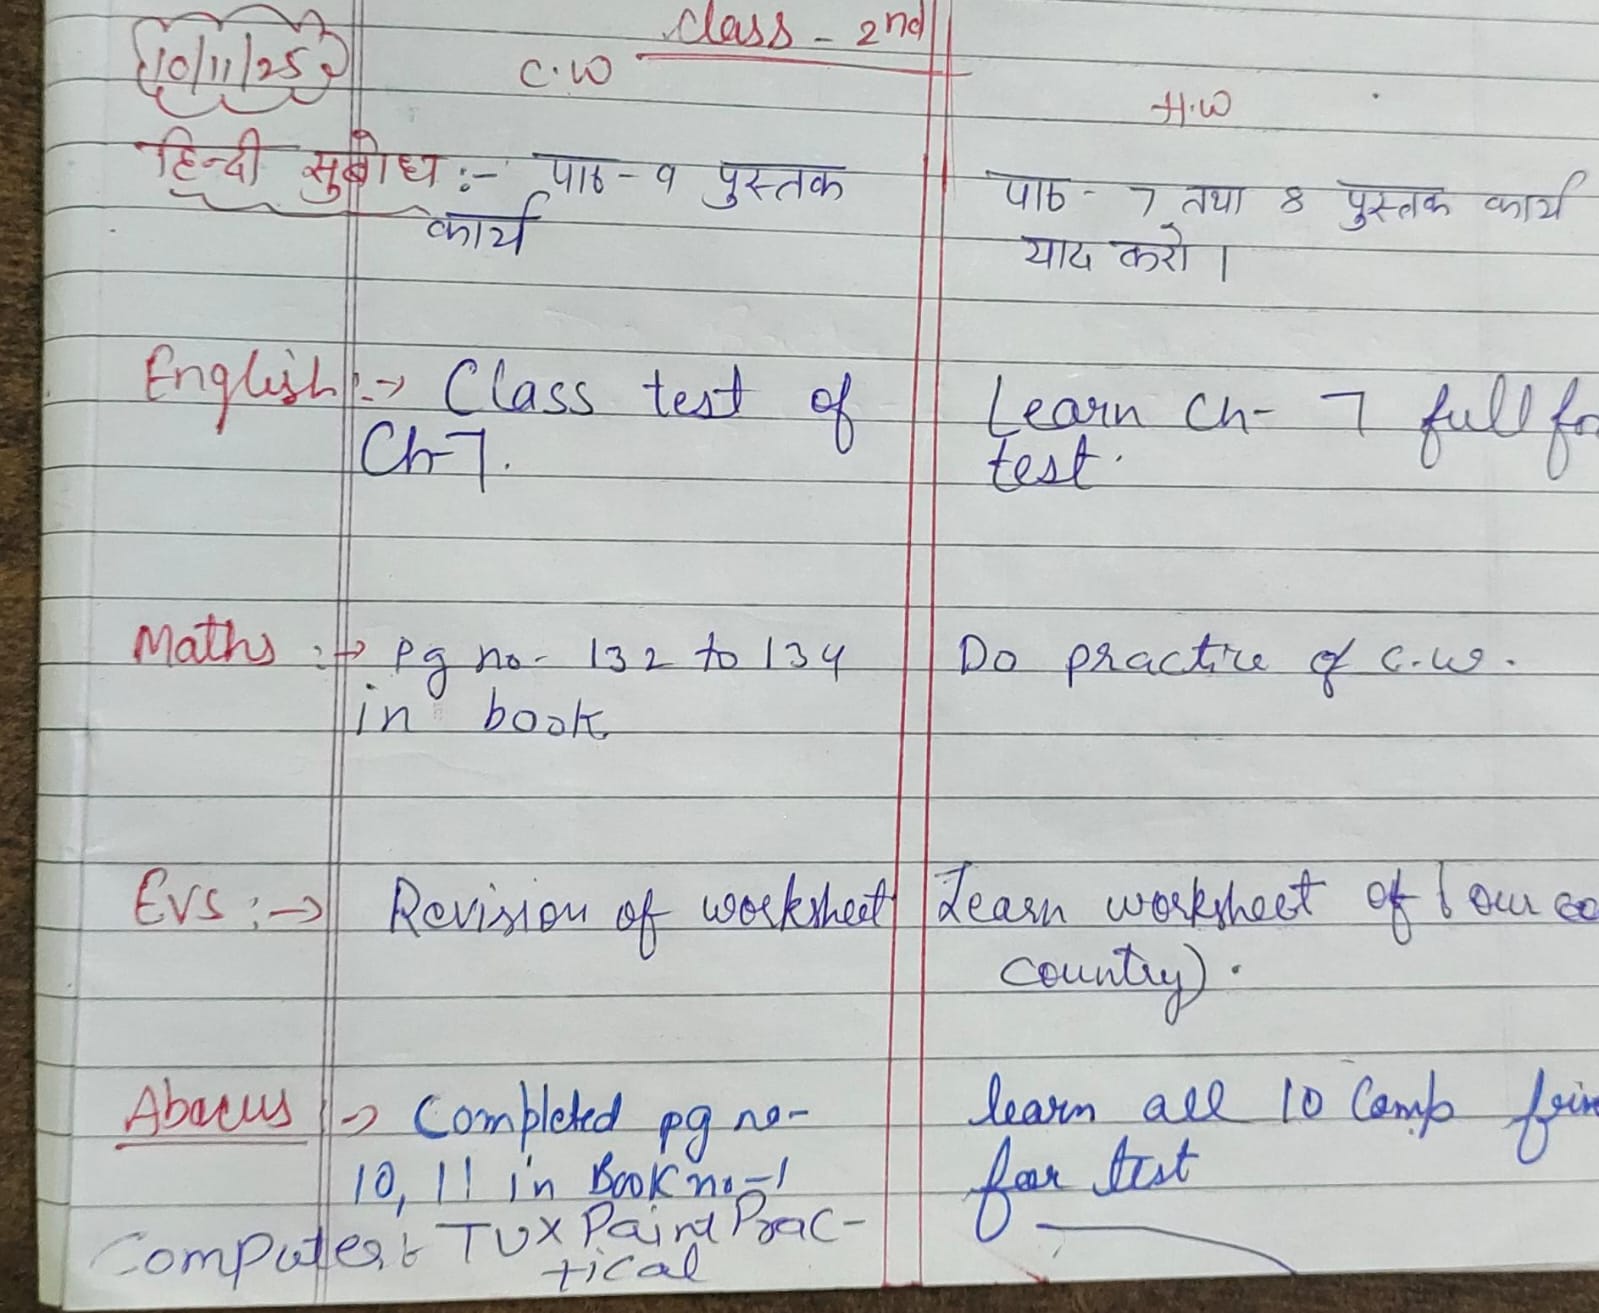 Class - 2nd
10/11/25
C.W
H.W
हिन्दी सुबोध :- पाठ - 9 पुस्तक
कार्य
पाठ - 7 तथा 8 पुस्तक कार्य
याद करो ।
English :-> Class test of
Ch-7.
Learn Ch- 7 full
test.
Maths :-> Pg no- 132 to 134
in book
Do practice of c.w.
EVS :-> Revision of worksheet
Learn worksheet of (our co
country).
Abacus -> Completed pg no-
10, 11 in Book no-1
learn all 10 Comp
for test
Computer : TUX Paint Prac-
tical